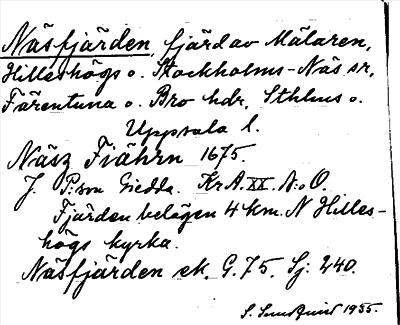 Näsfjärden, fjärd av Mälaren,
Hilleshögs o. Stockholms-Näs sn,
Färentuna o. Bro hdr, Sthlms o.
Uppsala l.
Näsz Fiährn 1675.
J. P:son Giedda. KrA. XX. N:o O.
Fjärden belägen 4 km. N Hilles-
högs kyrka.
Näsfjärden ek. G. 75. Sj. 240.
S. Sundqvist 1955.